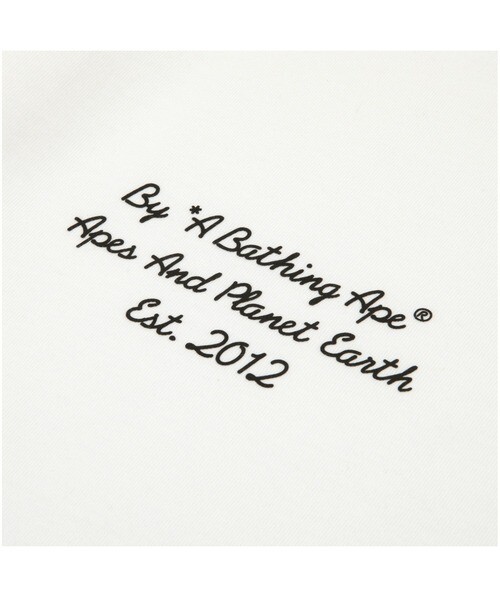 By *A Bathing Ape®
Apes And Planet Earth
Est. 2012